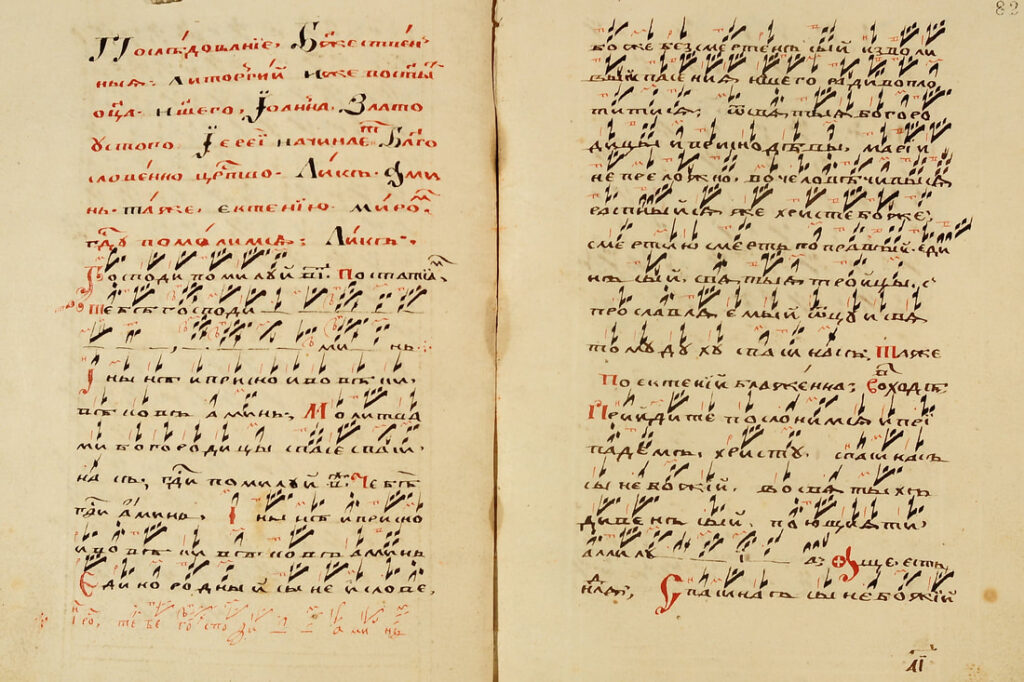 Послѣдованїе, Бжественныѧ литоргїи иже во ст҃ы
оц҃а нш҃его, Їоанна Злато
устого. Їерей начинае Блго
словенно црство. Ликъ. Ами
нь. таже, ектенїю миро
гдꙋ помолимсѧ; Ликъ.
Господи помилуй
тебѣ господи
ми нь
І ны нѣ и присно и во вѣ ки
вѣ ко въ а минь; Молитва
ми богородицы спасе спаси
на съ; гди помилуй
три Аминь. І ны нѣ и присно
и во вѣ ки вѣ ко въ аминь
Единородный сы не и слове,
гро, те бе го спо ди а ми нь
82
боже безсмертенъ сый изволи
вый спасениѧ нашего ради вопло
титисѧ; ѿ свѧтыѧ богоро
дицы и присно дѣвы, марїи
не преложно, во человѣчивыйсѧ
распныйсѧ же христе боже;
смертию смерть поправый. еди
нъ сый свѧтыѧ тройцы, с
прославлѧемый ѿцу и свѧ
тому духу спаси насъ. Таже
По ектений блаженна; Воходѣ
Прийдите поклонимсѧ и при
падемъ, христу. спаси насъ
сыне божий. во свѧтыхъ
дивенъ сый. поющиѧ ти
аллилу
Аще естъ
Спаси насъ сыне божий